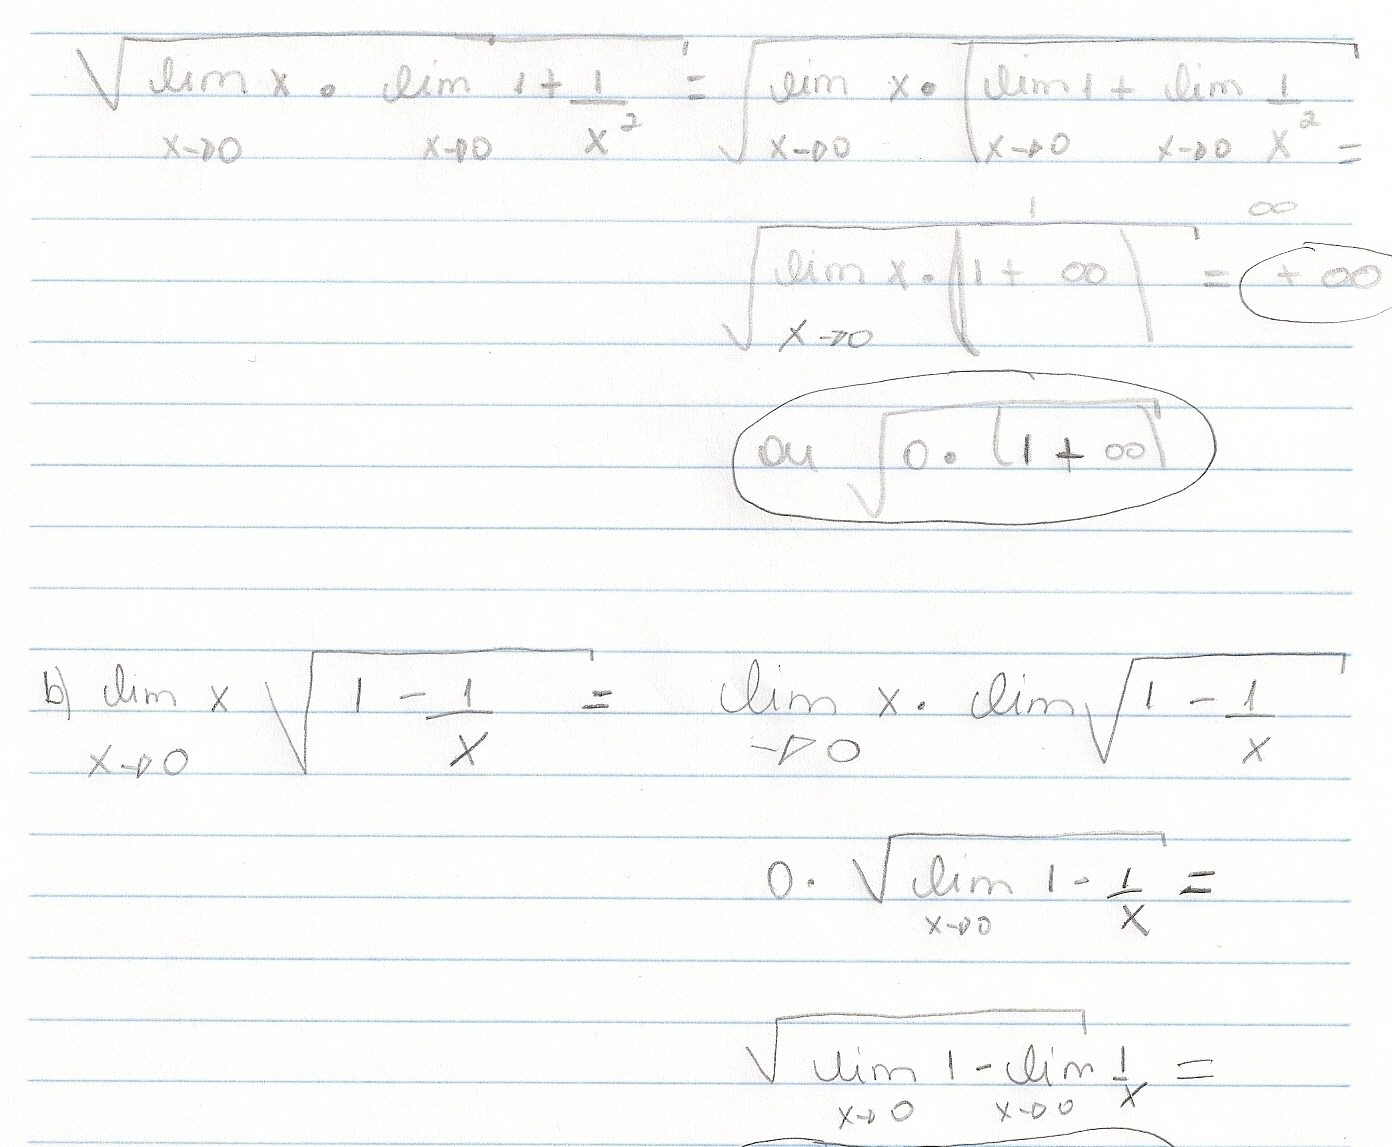 √(lim x→0 x · lim x→0 1 + 1/x²) = √(lim x→0 x · (lim x→0 1 + lim x→0 1/x²) =
1 ∞
√(lim x→0 x · (1 + ∞)) = +∞
ou √(0 · (1 + ∞))
b) lim x→0 x √(1 - 1/x) = lim →0 x · lim √(1 - 1/x)
0 · √(lim x→0 1 - 1/x) =
√(lim x→0 1 - lim x→0 1/x) =